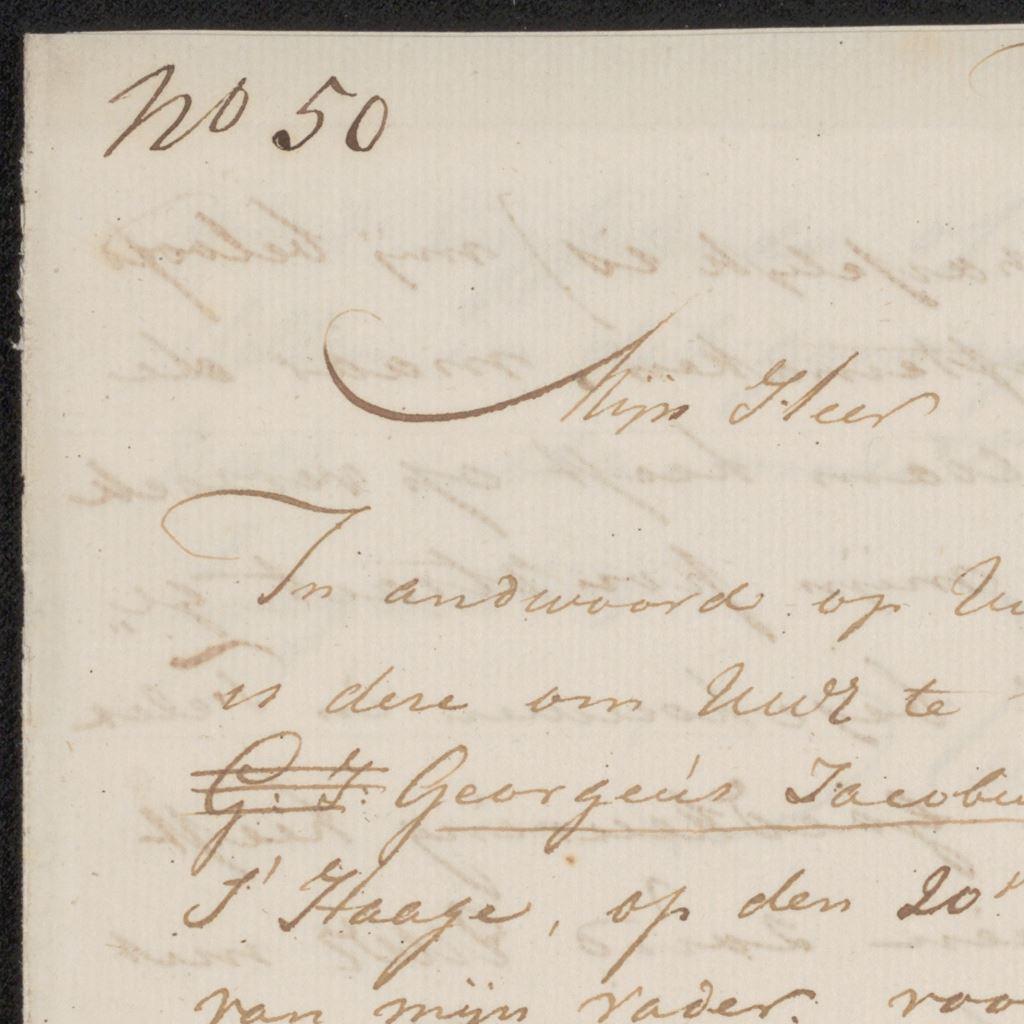 No 50
Mijn Heer
In andwoord op
is dese om UWE te
G. J. Georgeús Jacobu
S' Haage, op den 20
van mijn vader. voo